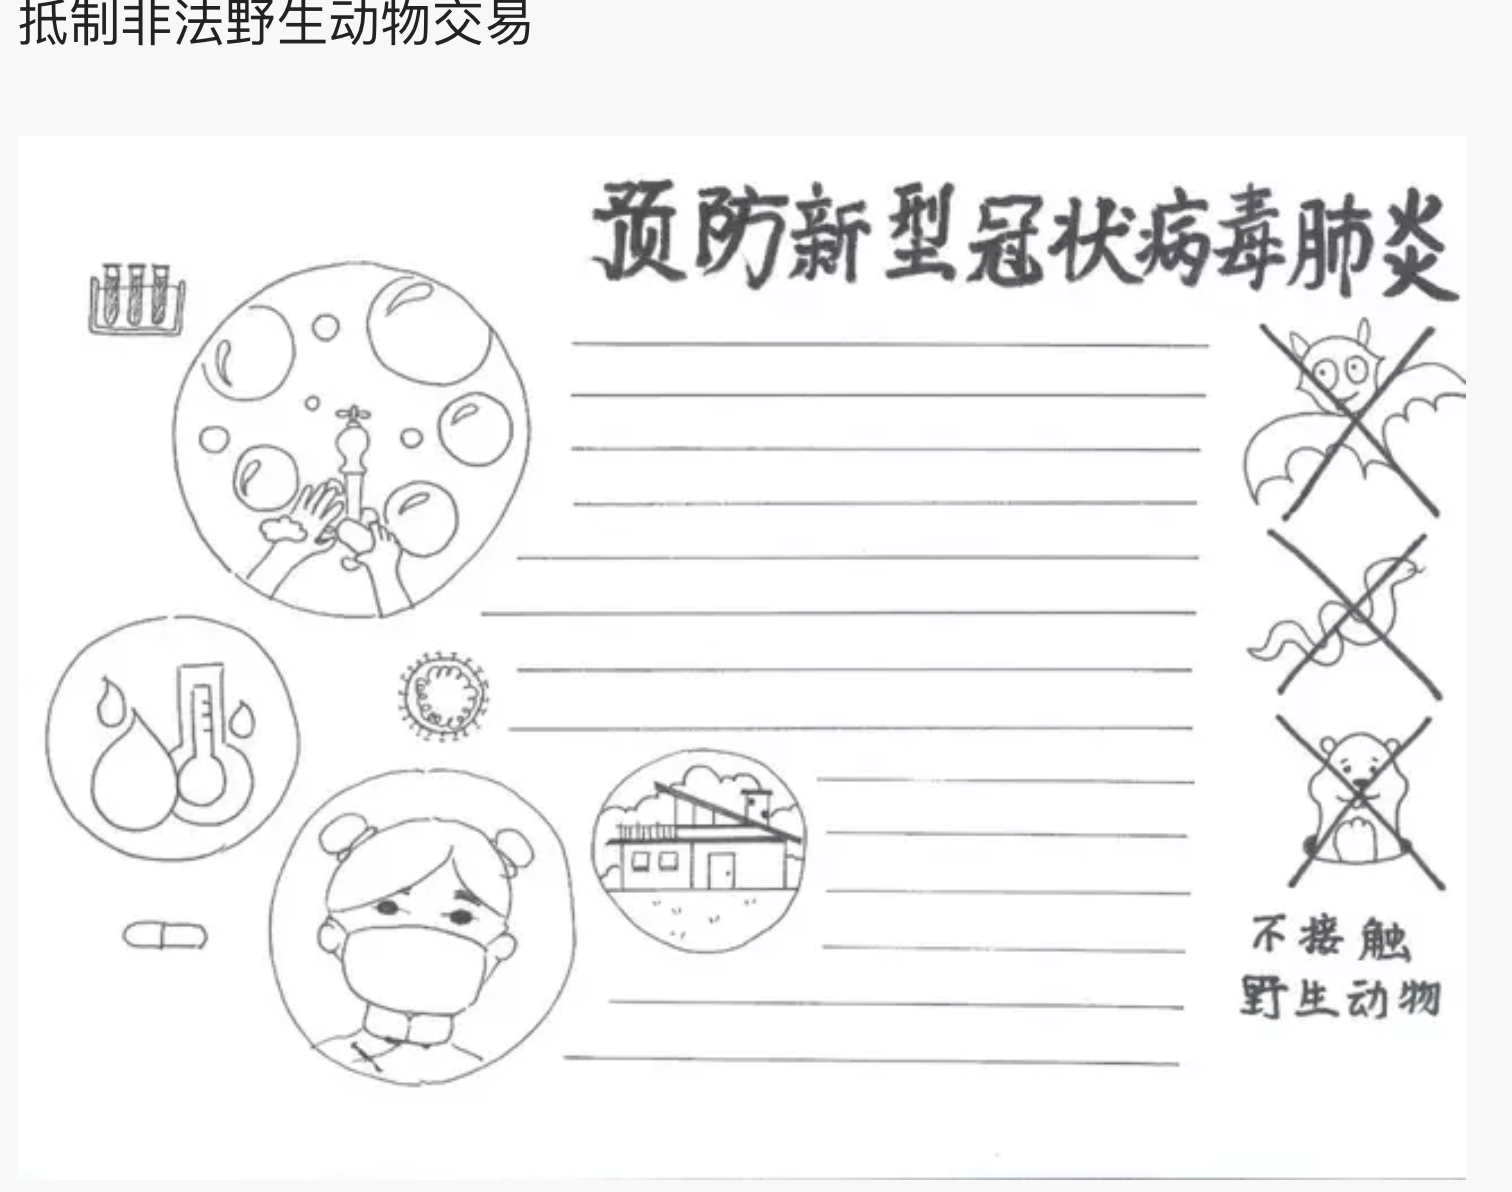 抵制非法野生动物交易
预防新型冠状病毒肺炎
不接触
野生动物